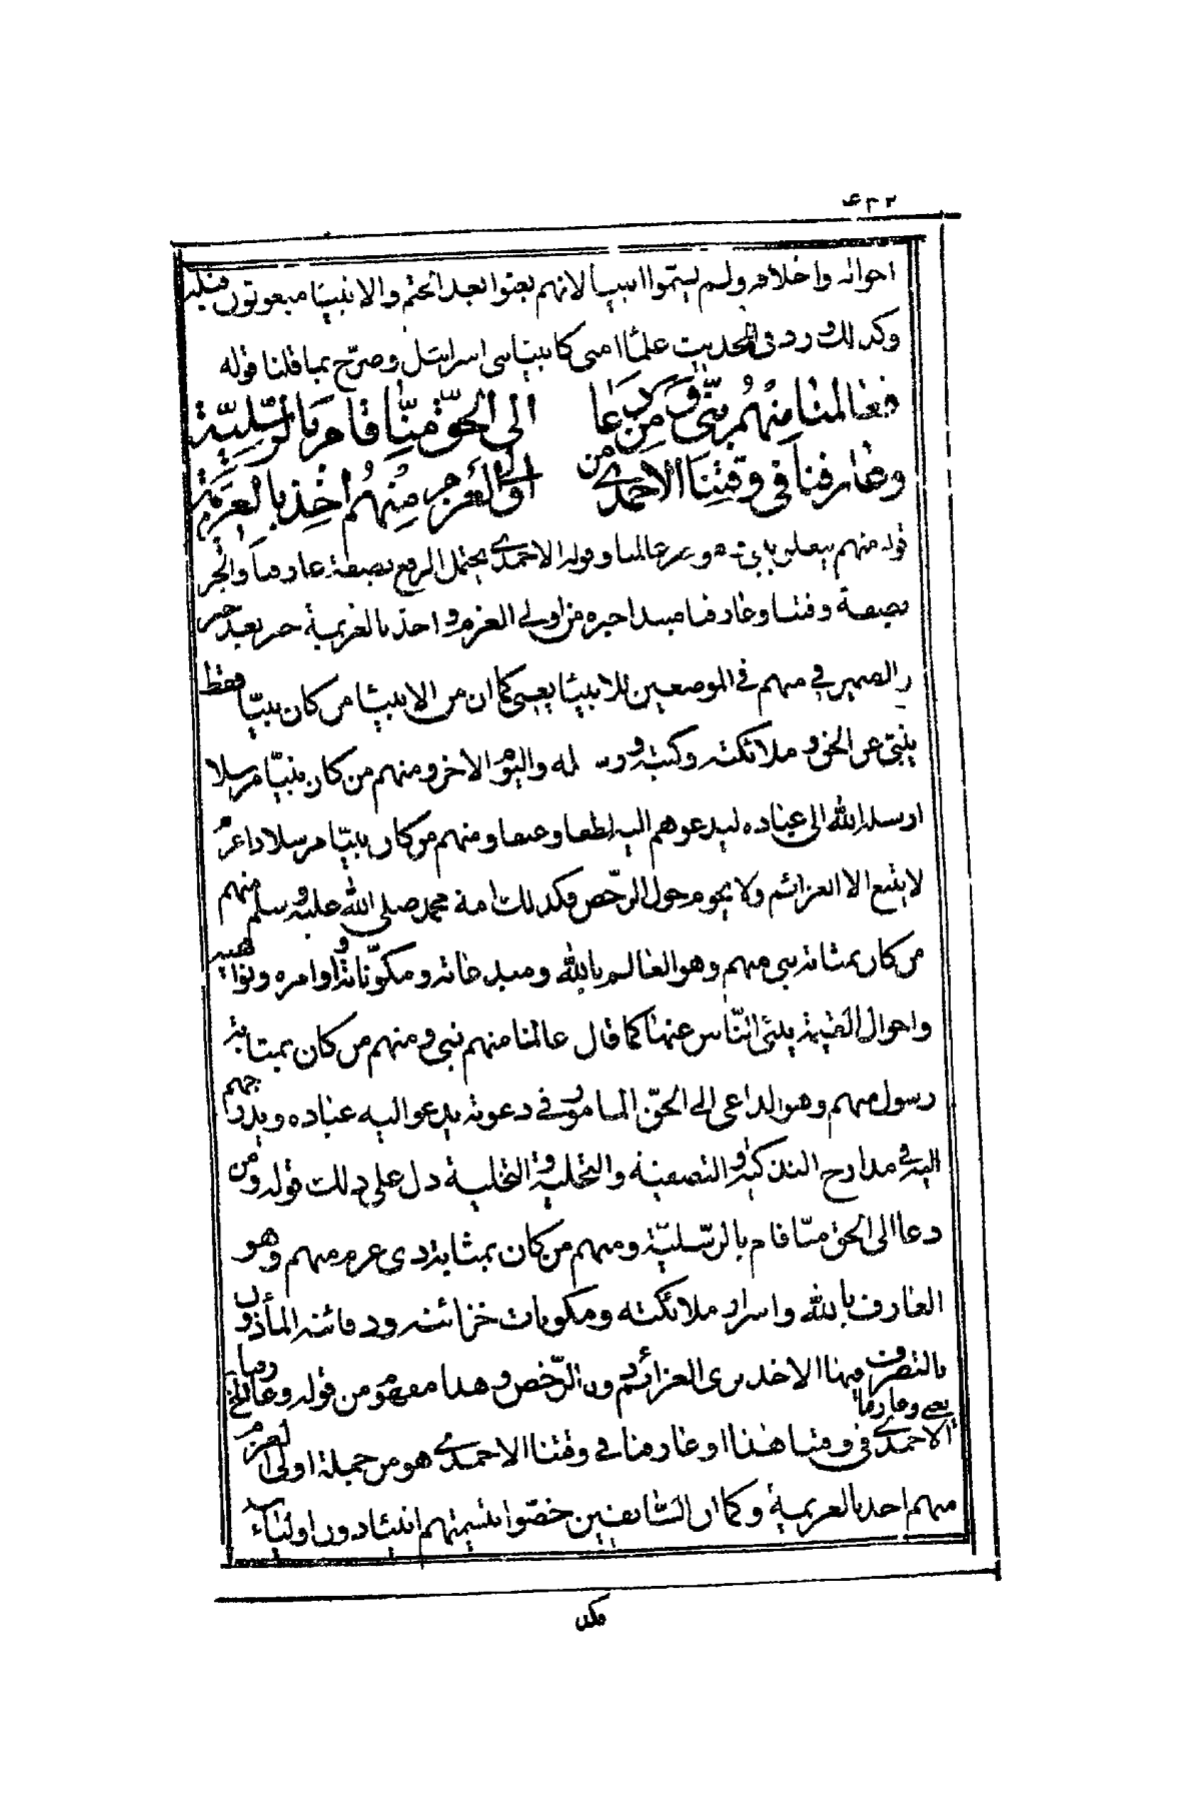 احواله واخلاقه ولم يسموا انبيا لانهم بعثوا بعد الختم والانبيا مبعوثون قبله
وكذلك ورد في الحديث علما امتى كانبيا بنى اسرايل وصرّح بما قلنا قوله
فعالمنا منهم نبىّ ومن دعا الى الحقّ منّا قام بالرسليّة
وعارفنا فى وقتنا الاحمدى من اولى العزم منهم اخذ بالعزيمة
قوله منهم يتعلق بنبى هو خبر عالمنا وقوله الاحمدى يحتمل الرفع بصفة عارفنا والجر
بصفة وقتنا وعارفنا مبتدا خبره من اولى العزم واخذ بالعزيمة خبر بعد خبر
والضمير في منهم في الموضعين للانبيا يعنى كما ان من الانبيا من كان نبيّا فقط
ينبئ عن الحق وملائكته وكتبه ورسله واليوم الاخر ومنهم من كان نبيّا مرسلا
ارسله الله الى عباده ليدعوهم اليه لطفا وعنفا ومنهم من كان نبيّا مرسلا ذا عزم
لا يتبع الا العزائم ولا يحوم حول الرخص فكذلك امة محمد صلى الله عليه وسلم منهم
من كان بمثابة نبى منهم وهو العالم بالله ومبدعاته ومكوّناته واوامره ونواهيه
واحوال القيمة ينبئ النّاس عنها كما قال عالمنا منهم نبى ومنهم من كان بمثابة
رسول منهم وهو الداعى الى الحقّ المامور في دعوته يدعو اليه عباده ويدرجهم
اليه في مدارج التزكية والتصفية والتحلية والتخلية دل على ذلك قوله ومن
دعا الى الحق منّا قام بالرّسليّة ومنهم من كان بمثابة ذى عزم منهم وهو
العارف بالله واسرار ملائكته ومكنونات خزائنه ودفائنه المأذون
بالتصرف فيها الاخذ بالعزائم دون الرّخص وهذا مفهوم من قوله وعارفنا
يعنى وعارفنا
الاحمدى فى وقتنا هذا او عارفنا في وقتنا الاحمدى هو من جملة اولى العزم
منهم اخذ بالعزيمة وكما ان السّابقين خصّوا بتسميتهم انبياء دون اولياء
فكذا